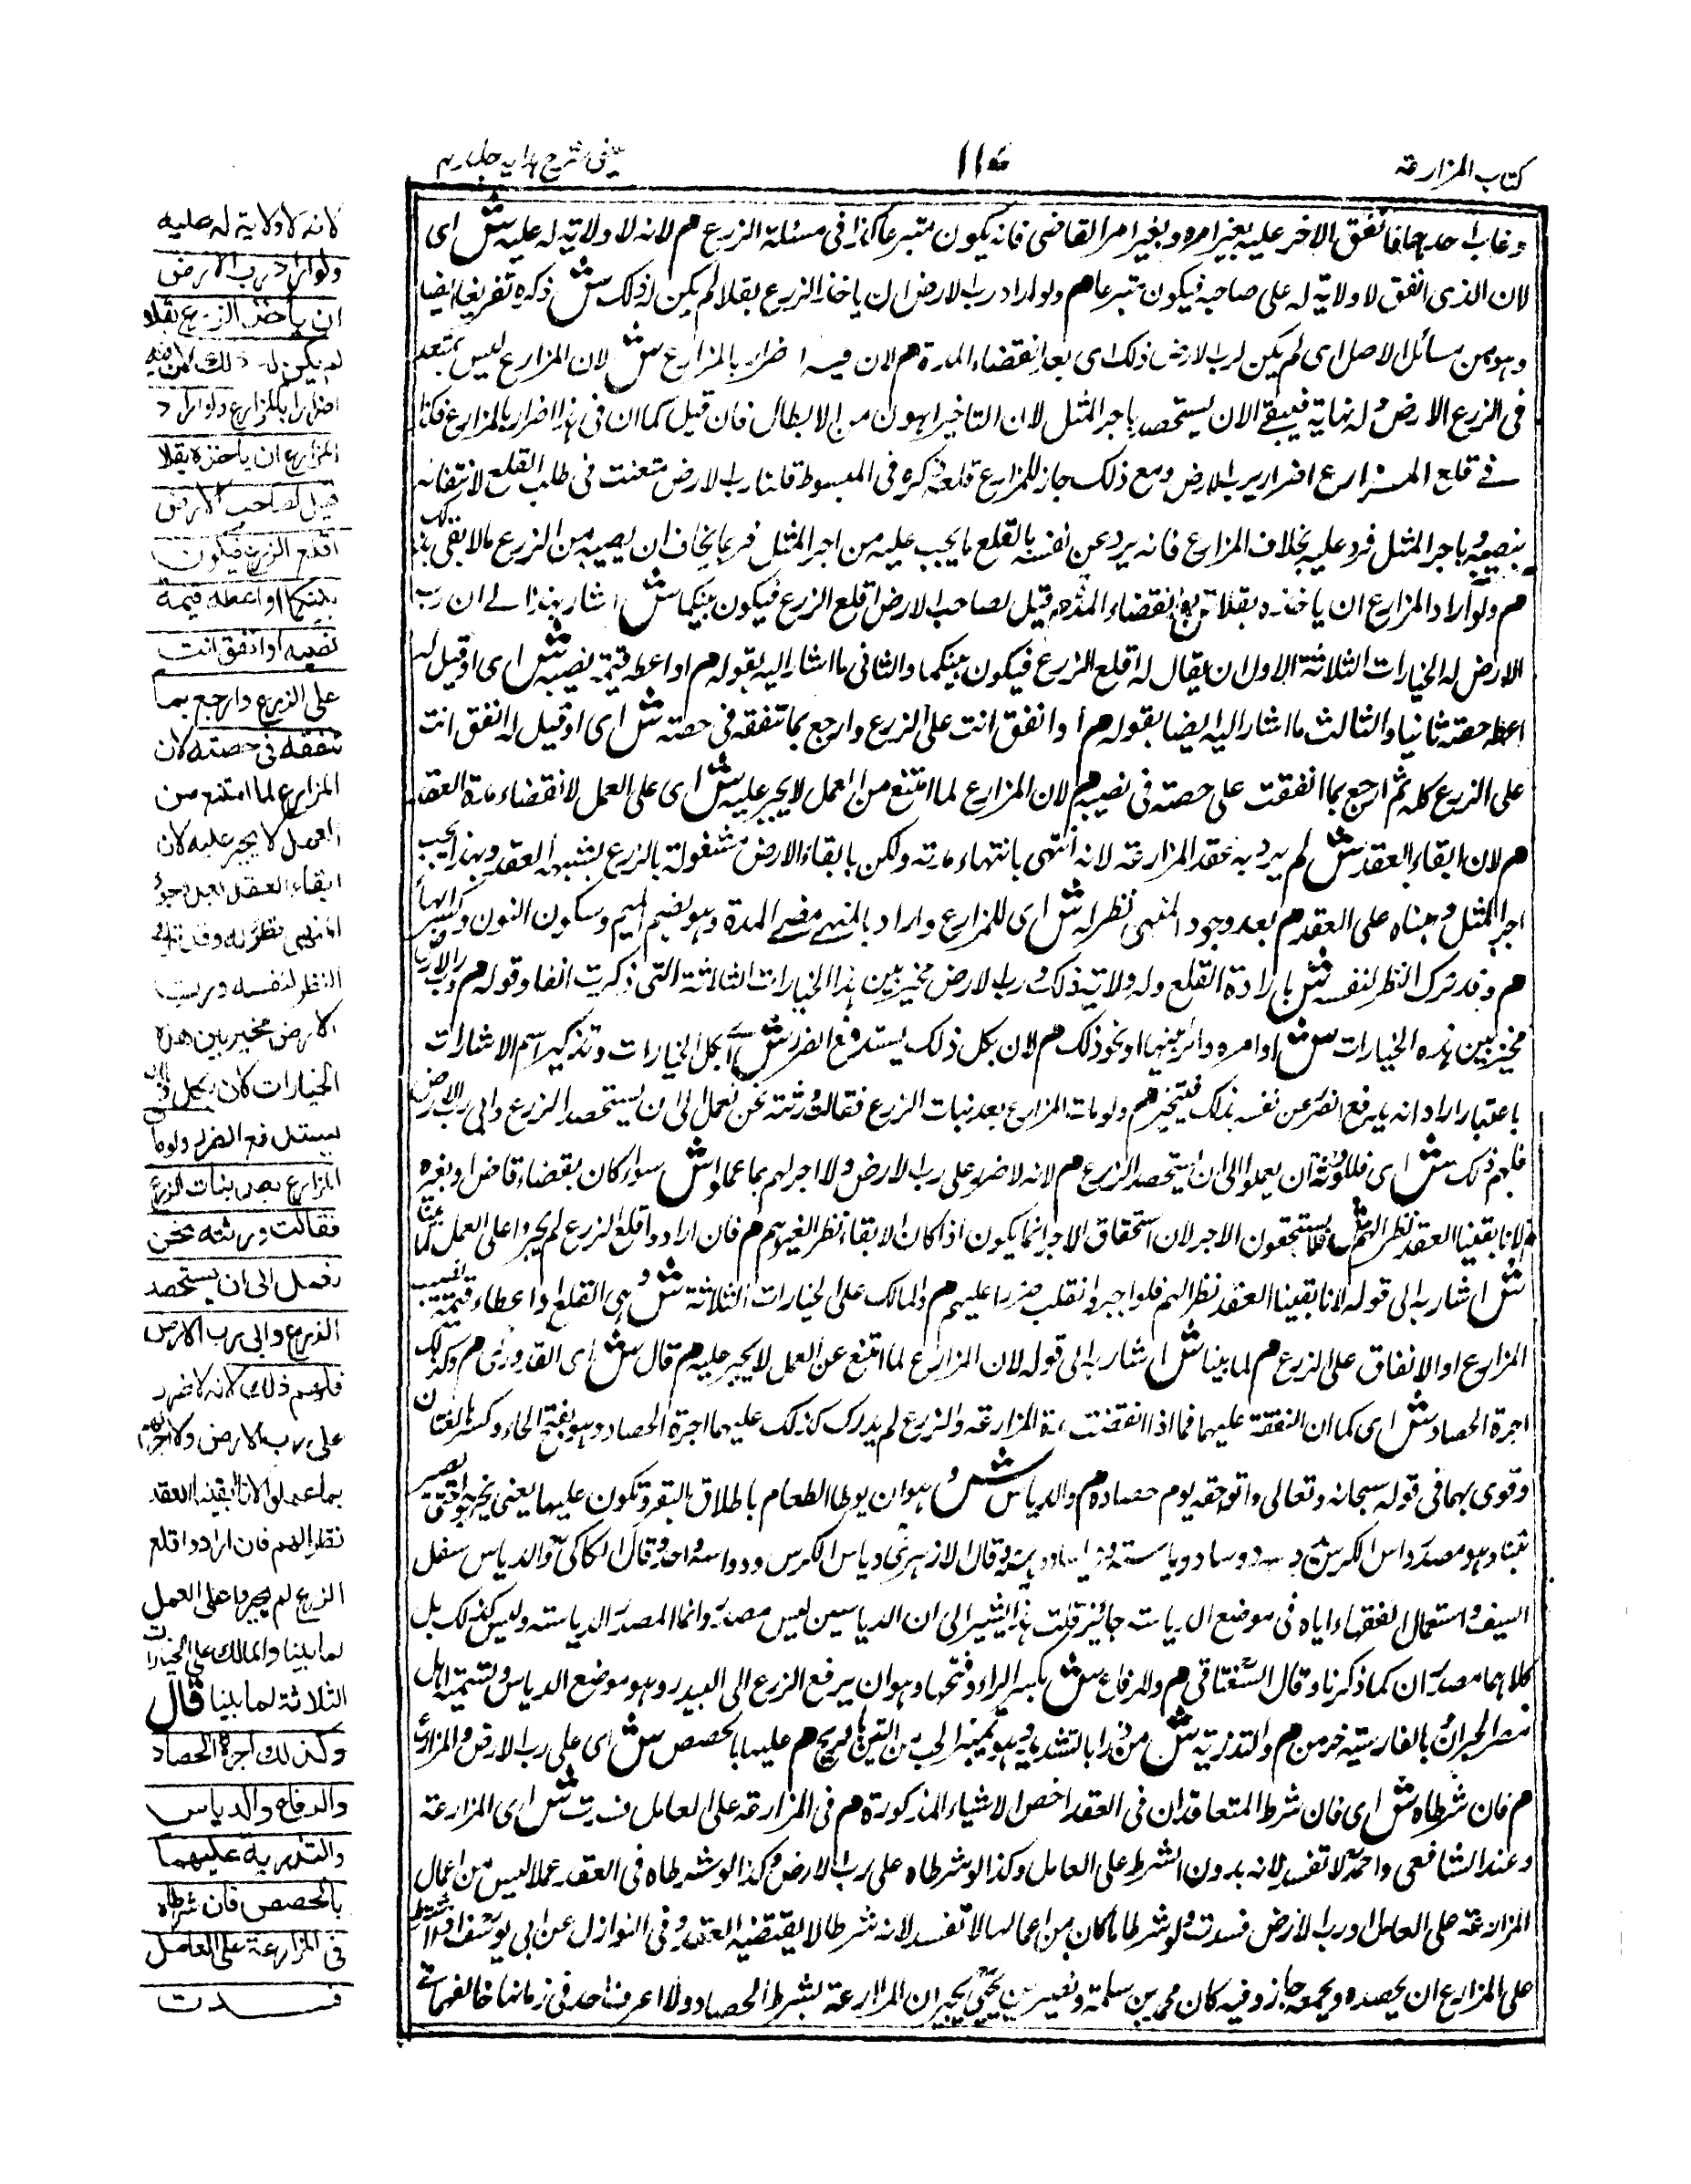 كتاب المزارعة
١١٤
عينى شرح هدايه جلد رابع
وغاب احدهما فانفق الاخر عليه بغير امره وبغير امر القاضى فانه يكون متبرعا كذا فى مسئلة الزرع م لانه لا ولاية له عليه ش اى
لان الذى انفق لا ولاية له على صاحبه فيكون متبرعا م ولو اراد رب الارض ان ياخذ الزرع بقلا لم يكن له ذلك ش ذكره تفريعا ايضا
وهو من مسائل الاصل اى لم يكن لرب الارض ذلك اى بعد انقضاء المدة م لان فيه اضرارا بالمزارع ش لان المزارع ليس بمتعد
فى الزرع الارض وله نهاية فيبقى الان يستحصد باجر المثل لان التاخير اهون من الابطال فان قيل كما ان فى هذا اضرار بالمزارع فكذا
فى قلع المزارع اضرار برب الارض ومع ذلك جاز للمزارع قلعه ذكره فى المبسوط قلنا رب الارض متعنت فى طلب القلع لانتفاعه
بنصيبه وباجر المثل فرد عليه بخلاف المزارع فانه يرد عن نفسه بالقلع ما يجب عليه من اجر المثل فربما يخاف ان يصيبه من الزرع مالا يفى بذلك
م ولو اراد المزارع ان ياخذه بقلا ش بعد انقضاء المدة م قيل لصاحب الارض اقلع الزرع فيكون بينكما ش اشار بهذا الى ان رب
الارض له الخيارات الثلاثة الاول ان يقال له اقلع الزرع فيكون بينكما والثانى ما اشار اليه بقوله م او اعطه قيمة نصيبه ش اى او قيل له
اعطه حصته ثانيا والثالث ما اشار اليه ايضا بقوله م او انفق انت على الزرع وارجع بما تنفقه فى حصته ش اى او قيل له انفق انت
على الزرع كله ثم ارجع بما انفقت على حصته فى نصيبه م لان المزارع لما امتنع من العمل لا يجبر عليه ش اى على العمل لانقضاء مدة العقد
م لان ابقاء العقد ش لم يرد به عقد المزارعة لانه انتهى بانتهاء مدته ولكن بابقاء الارض مشغولة بالزرع يشبه العقد وبهذا يجب
اجر المثل ومبناه على العقد م بعد وجود المنهى نظر له ش اى للمزارع واراد بالمنهى مضى المدة وهو بضم الميم وسكون النون وكسر الهاء
م وقد ترك النظر لنفسه ش بارادة القلع وله ولاية ذلك و رب الارض مخير بين هذا الخيارات الثلاثة التى ذكرت انفا وقوله م ورب الارض
مخير بين هذه الخيارات ش او امره دائر بينها او نحو ذلك م لان بكل ذلك يستدفع الضرر ش اى بكل الخيارات وتذكير اسم الاشارات
باعتبار اراد انه يدفع الضرر عن نفسه بذلك فيتخير م ولو مات المزارع بعد نبات الزرع فقالت ورثته نحن نعمل الى ان يستحصد الزرع وابى رب الارض
فلهم ذلك ش اى فللورثة ان يعملوا الى ان يستحصد الزرع م لانه لا ضرر على رب الارض ولا اجر لهم بما عملوا ش سواء كان بقضاء قاض او بغيره
م لانا بقينا العقد نظرا لهم ش فلا يستحقون الاجر لان استحقاق الاجر انما يكون اذا كان الابقاء نظرا لغيرهم م فان ارادوا قلع الزرع لم يجبروا على العمل لما بينا
ش اشار به الى قوله لانا بقينا العقد نظرا لهم فلو اجبروا انقلب ضررا عليهم م والمالك على الخيارات الثلاثة ش وهى القلع او اعطاء قيمة نصيب
المزارع او الانفاق على الزرع م لما بينا ش اشار به الى قوله لان المزارع لما امتنع عن العمل لا يجبر عليه م قال ش اى القدورى م وكذلك
اجرة الحصاد ش اى كما ان النفقة عليهما فيما اذا انقضت مدة المزارعة والزرع لم يدرك كذلك عليهما اجرة الحصاد وهو بفتح الحاء وكسرها لغتان
وقرى بهما فى قوله سبحانه وتعالى واتوا حقه يوم حصاده م والدياس ش وهو ان يوطا الطعام باطلاق البقر وتكون عليها يعنى يخرجوا حتى يصير
تبنا وهو مصدر داس الكرس ودياسة وقال الازهرى دياس الكرس ودواسه واحد وقال الكاكى والدياس سقل
السيف واستعمال الفقهاء اياه فى موضع الدياسة جائز قلت هذا يشير الى ان الدياس ليس مصدر وانما المصدر الدياسة وليس كذلك بل
كلاهما مصدران كما ذكرنا وقال السغناقى م والرفاع ش بكسر الراء وفتحها وهو ان يرفع الزرع الى البيدر وهو موضع الدياس وتسميه اهل
مصر الجرن بالفارسية خرمن م والتذرية ش من ذرا بالتشديد وهو تمييز الحب من التبن بالريح م عليهما بالحصص ش اى على رب الارض والمزارع
م فان شرطاه ش اى فان شرط المتعاقدان فى العقد اخص الاشياء المذكورة م فى المزارعة على العامل فسدت ش اى المزارعة
وعند الشافعى واحمد لا تفسد لانه بدون الشرط على العامل وكذا لو شرطاه على رب الارض وكذا لو شرطاه فى العقد عملا ليس من اعمال
المزارعة على العامل او رب الارض فسدت ولو شرطا ما كان من اعمالها لا تفسد لانه شرط لا يقتضيه العقد وفى النوازل عن ابى يوسف اذا شرط
على المزارع ان يحصده ويجمعه جاز وفيه كان محمد بن سلمة ونصير بن يحيى يجيزان المزارعة بشرط الحصاد ولا اعرف احد فى زمانهما خالفهما
لانه لا ولاية له عليه
ولو اراد رب الارض
ان ياخذ الزرع بقلا
لم يكن له ذلك لان فيه
اضرارا بالمزارع ولو اراد
المزارع ان ياخذه بقلا
قيل لصاحب الارض
اقلع الزرع فيكون
بينكما او اعطه قيمة
نصيبه او انفق انت
على الزرع وارجع بما
تنفقه فى حصته لان
المزارع لما امتنع من
العمل لا يجبر عليه لان
ابقاء العقد بعد وجود
المنهى نظر له وقد ترك
النظر لنفسه ورب
الارض مخير بين هذه
الخيارات لان بكل ذلك
يستدفع الضرر ولو مات
المزارع بعد نبات الزرع
فقالت ورثته نحن
نعمل الى ان يستحصد
الزرع وابى رب الارض
فلهم ذلك لانه لا ضرر
على رب الارض ولا اجر لهم
بما عملوا لانا ابقينا العقد
نظرا لهم فان ارادوا قلع
الزرع لم يجبروا على العمل
لما بينا والمالك على الخيارات
الثلاثة لما بينا قال
وكذلك اجرة الحصاد
والرفاع والدياس
والتذرية عليهما
بالحصص فان شرطاه
فى المزارعة على العامل
فسدت